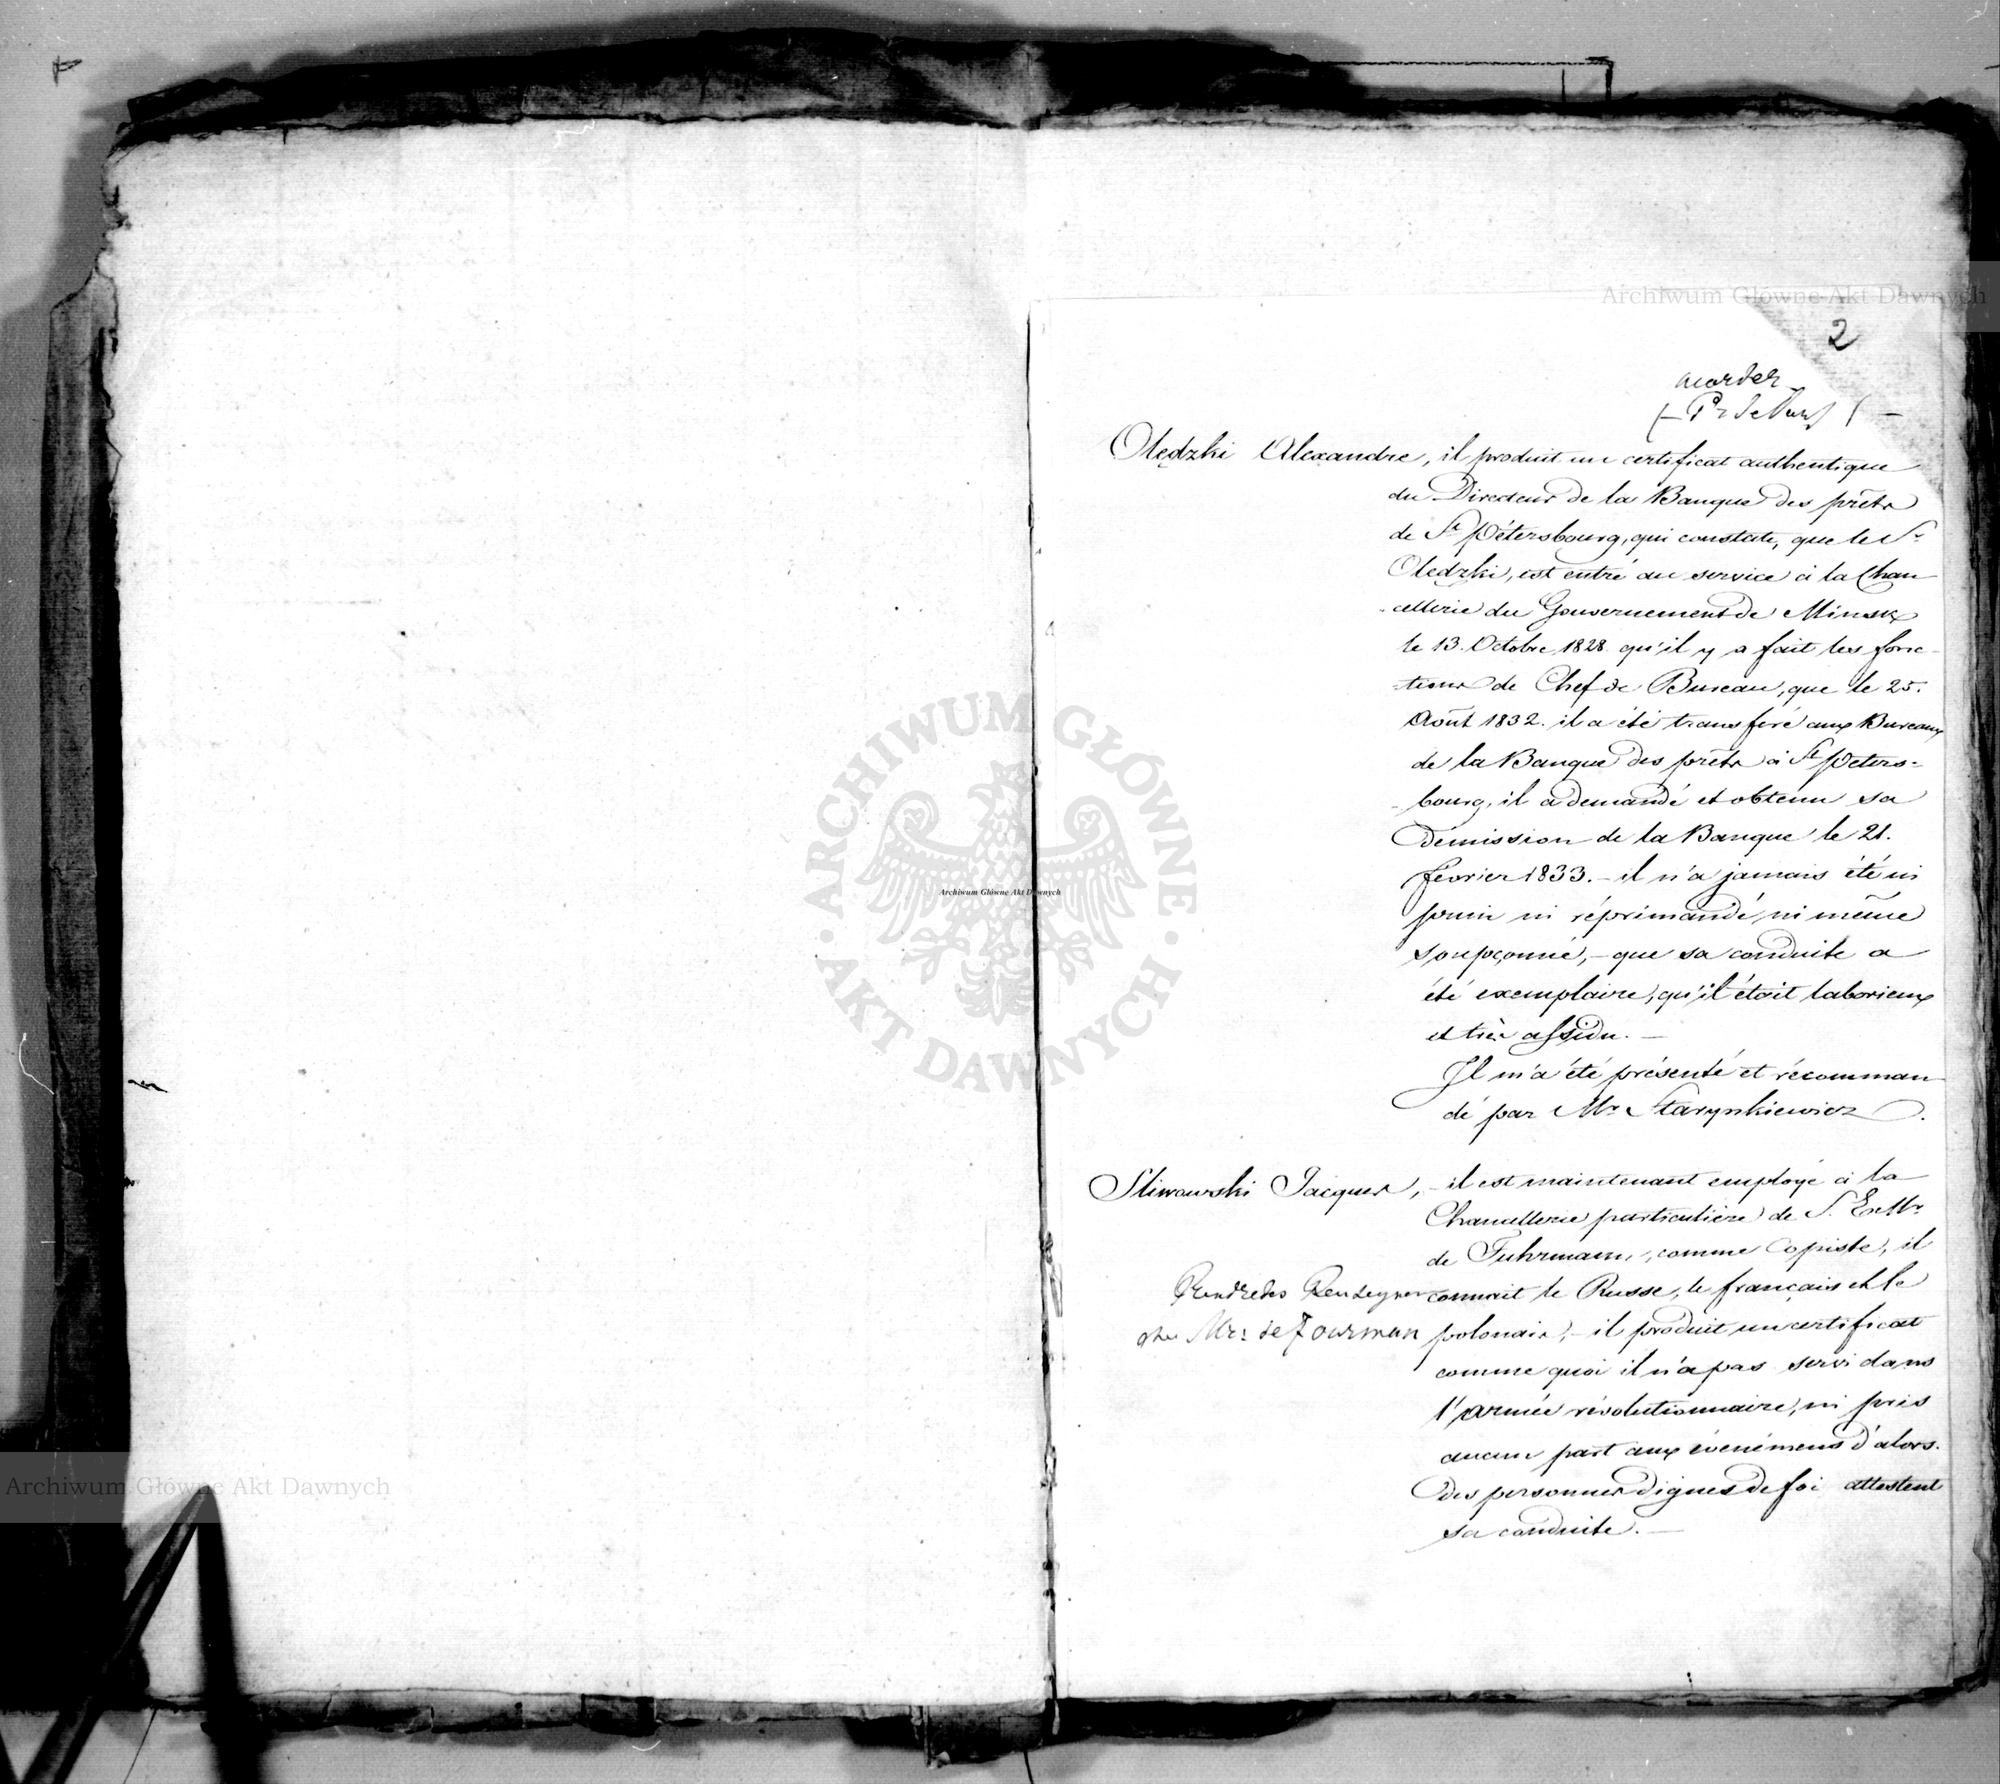 Archiwum Główne Akt Dawnych
2
acorder
Olędzki Alexandre, il produit un certificat authentique
du Directeur de la Banque des prêts
de St Pétersbourg, qui constate, que le Sr
Olędzki, est entré au service à la Chan
-cellerie du Gouvernement de Minsk
le 13. Octobre 1828. qu'il y a fait les fonc-
-tions de Chef de Bureau, que le 25.
Août 1832. il a été transferé aux Bureaux
de la Banque des prêts à St Peters-
-bourg, il a demandé et obtenu sa
Démission de la Banque le 21.
février 1833. - il n'a jamais été ni
puni ni réprimandé, ni même
soupçonné, - que sa conduite a
été exemplaire, qu'il était laborieux
et très assidu. -
Il m'a été présenté et récomman
dé par Mr Starynkiewicz.
Sliwowski Jacques, - il est maintenant employé à la
Chancellerie particulière de S. E. Mr
de Fuhrmann, comme Copiste, il
connait le Russe, le français et le
polonais, - il produit un certificat
comme quoi il n'a pas servi dans
l'armée révolutionnaire, ni pris
aucun part aux évenémens d'alors.
Des personnes dignes de foi attestent
sa conduite. -
Prendre des
Mr: de Fourman
ARCHIWUM GŁÓWNE AKT DAWNYCH
Archiwum Główne Akt Dawnych
Archiwum Główne Akt Dawnych